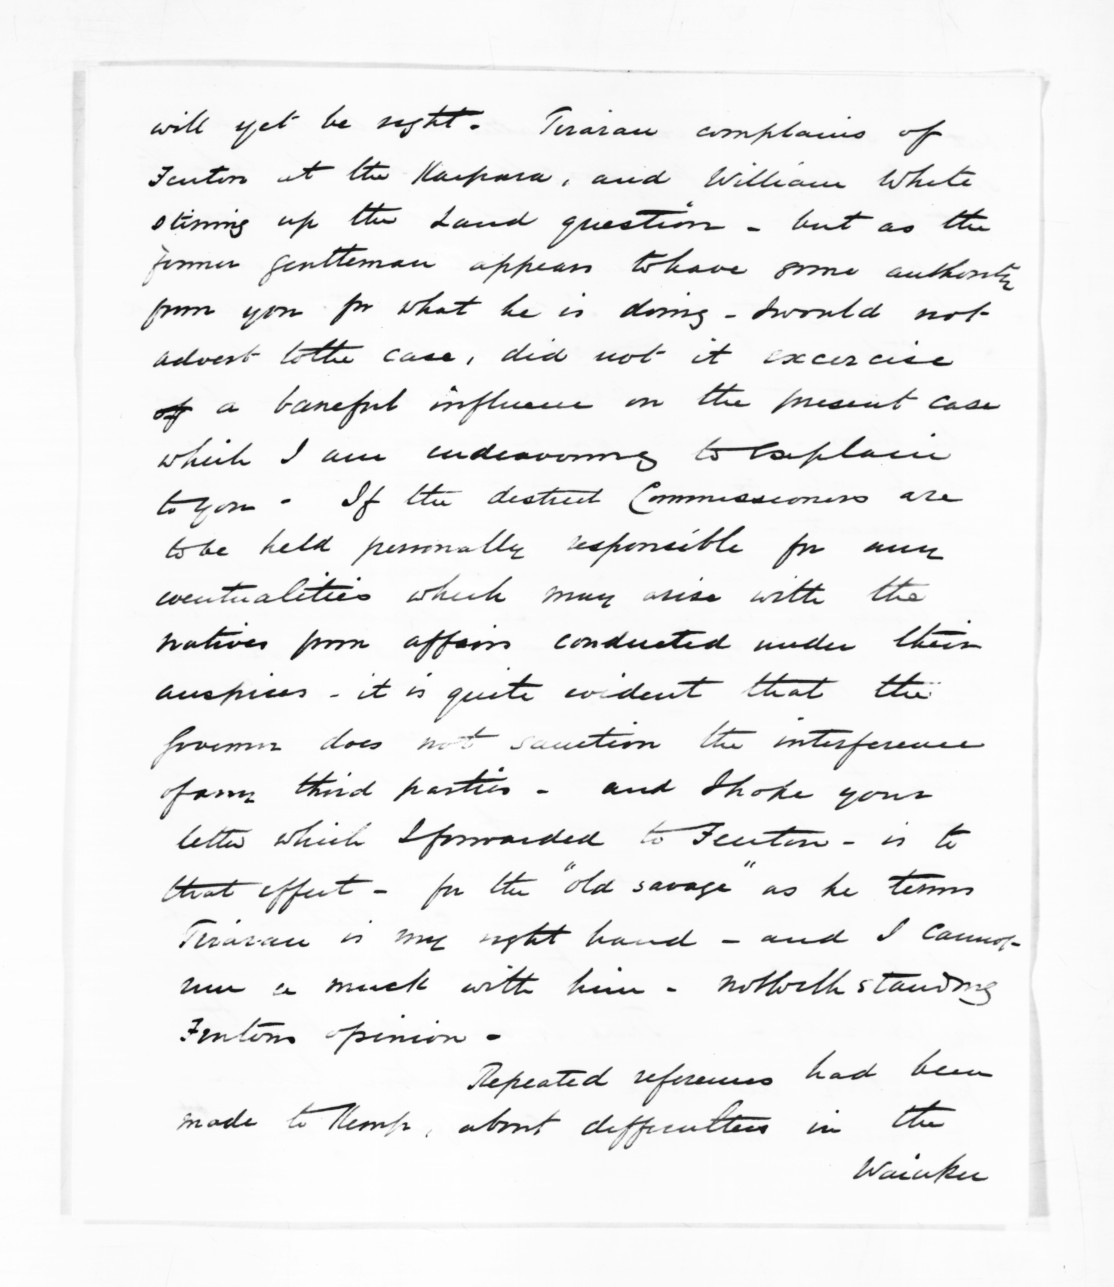 will yet be right. Tirarau complains of
Fenton at the Kaipara, and William White
stirring up the Land question - but as the
former gentleman appears to have some authority
from you for what he is doing - I would not
advert to the case, did not it excercise
of a baneful influence on the present case
which I am endeavoring to explain
to you - If the district Commissioners are
to be held personally responsible for any
eventualities which may arise with the
natives from affairs conducted under their
auspices - it is quite evident that the
Governor does not sanction the interference
of any third parties - and I hope your
letter which I forwarded to Fenton - is to
that effect - for the "old savage" as he terms
Tirarau is my right hand - and I cannot
run a muck with him - notwithstanding
Fentons opinion -
Repeated references had been
made to Kemp, about difficulties in the
Waiuku